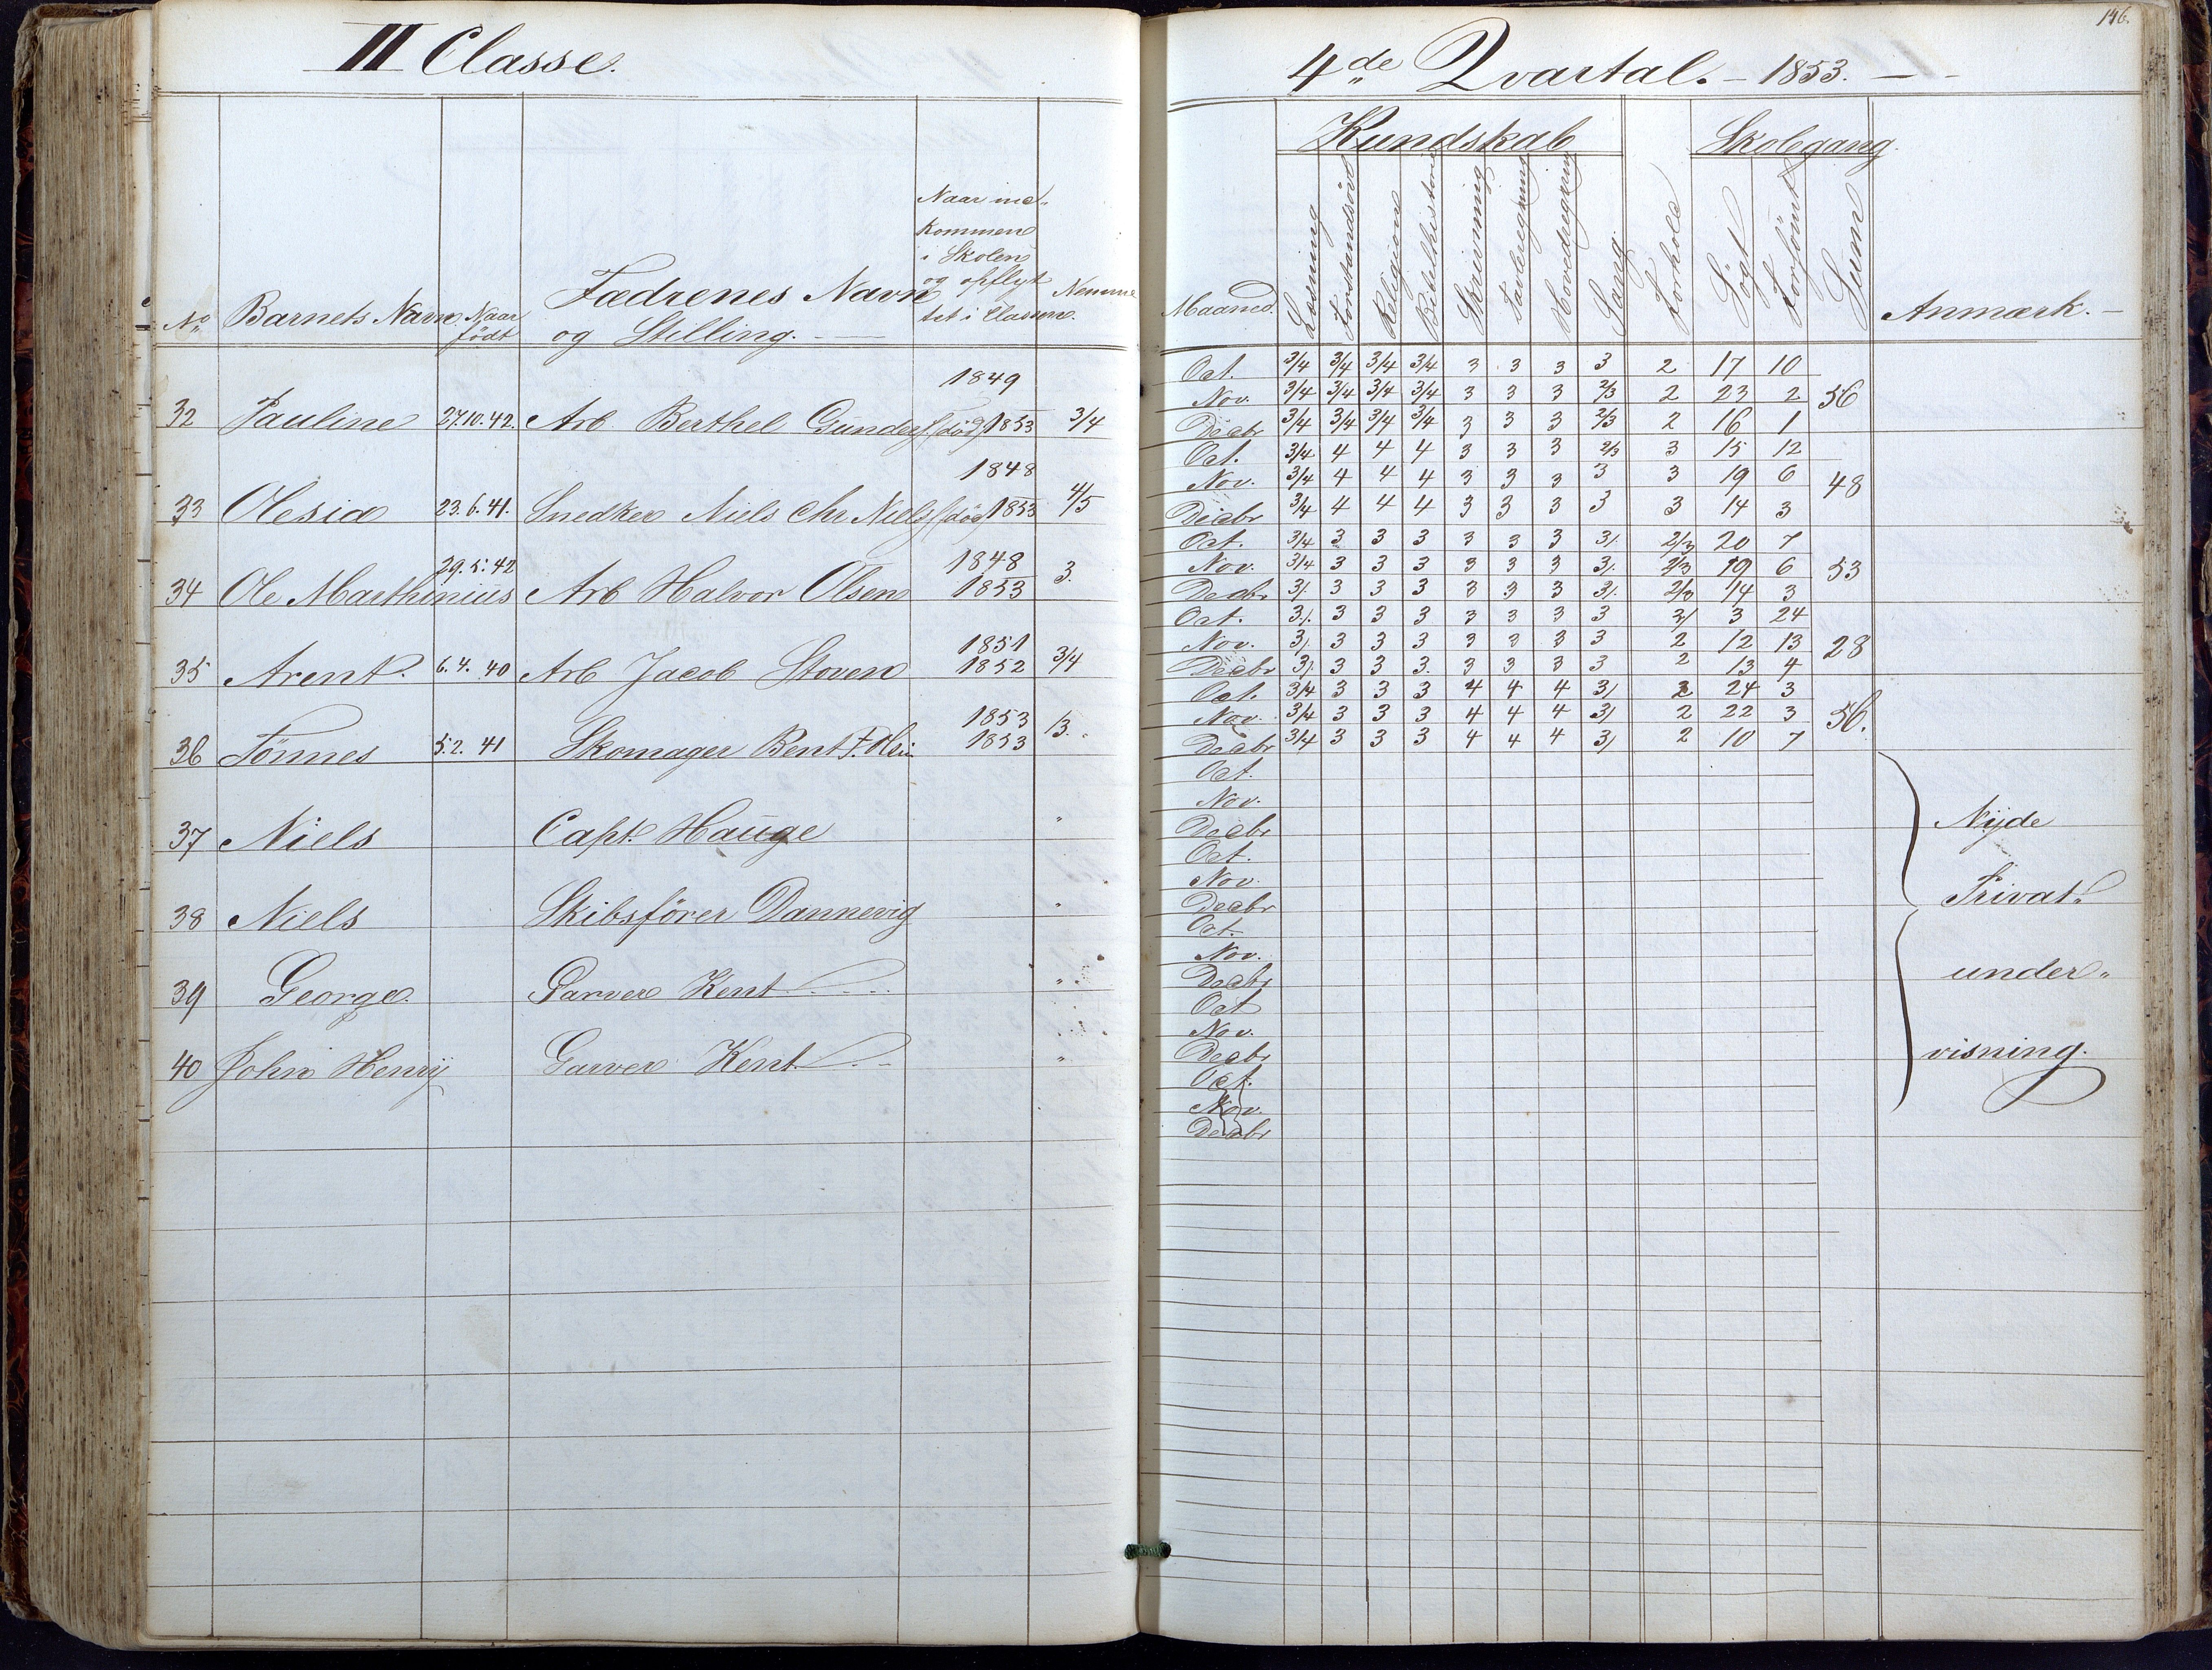 III Classe.
4de Qvartal. - 1853. -
146.
No Barnets Navn Naar født Fædrenes Navn og Stilling. Naar ind- kommen i Skolen og opflyt- tet i Classen. Nemme
Maaned. Kundskab Læsning Forstandsöv Religion Bibelhistorie Skrivning Tavleregning Hovedregning Sang. Forhold Skolegang. Sögt Forsömt Sum Anmærk. -
32 Pauline 27.10.42. Arb. Berthel Gunders. (död) 1849 1853 3/4
Oct. 3/4 3/4 3/4 3/4 3 3 3 3 2 17 10
Nov. 3/4 3/4 3/4 3/4 3 3 3 2/3 2 23 2 56
Decbr 3/4 3/4 3/4 3/4 3 3 3 2/3 2 16 1
33 Olesia 23.6.41. Snedker Niels Chr Niels (död) 1848 1853 4/5
Oct. 3/4 4 4 4 3 3 3 2/3 3 15 12
Nov. 3/4 4 4 4 3 3 3 3 3 19 6 48
Decbr 3/4 4 4 4 3 3 3 3 3 14 3
34 Ole Marthinius 29.5.42 Arb Halvor Olsen 1848 1853 3.
Oct. 3/4 3 3 3 3 3 3 3/. 2/3 20 7
Nov. 3/4 3 3 3 3 3 3 3/. 2/3 19 6 53
Decbr 3/. 3 3 3 3 3 3 3/. 2/3 14 3
35 Arent. 6.4.40 Arb Jacob Stoven 1851 1852 3/4
Oct. 3/. 3 3 3 3 3 3 3 2/ 3 24
Nov. 3/. 3 3 3 3 3 3 3 2 12 13 28
Decbr 3/. 3 3 3. 3 3 3 3 2 13 4
36 Tönnes 5.2.41 Skomager Bent T. Olsen 1853 1853 /3.
Oct. 3/4 3 3 3 4 4 4 3/ 2 24 3
Nov. 3/4 3 3 3 4 4 4 3/ 2 22 3 56.
Decbr 3/4 3 3 3 4 4 4 3/ 2 10 7
37 Niels Capt. Hauge "
Oct.
Nov.
Decbr
38 Niels Skibsförer Dannevig "
Oct.
Nov.
Decbr
39 George. Garver Kent "
Oct.
Nov.
Decbr
40 John Henrÿ Garver Kent "
Oct
Nov.
Decbr
Oct.
Nov.
Decbr
Nÿde
Privat-
under-
visning.